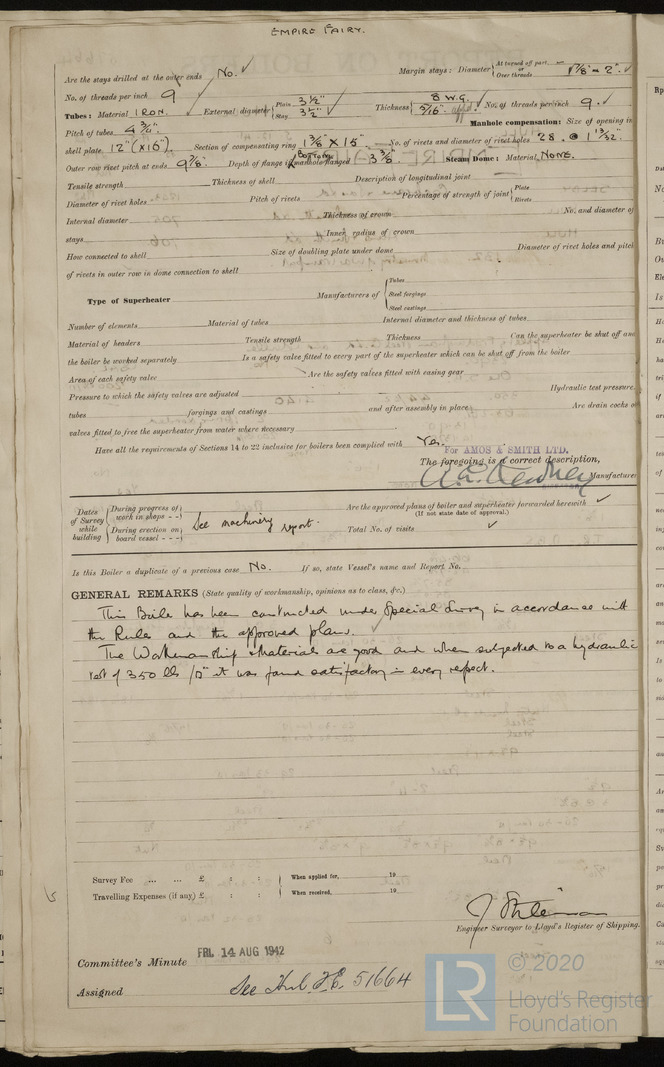 EMPIRE FAIRY.
Are the stays drilled at the outer ends No. ✓ Margin stays: Diameter { At turned off part, or Over threads 1 7/8" - 2". ✓
No. of threads per inch 9
Tubes: Material IRON. External diameter { Plain 3 1/2" Stay 3 1/2" ✓ Thickness { 8 W.G. 5/16" ✓ No. of threads per inch 9. ✓
Pitch of tubes 4 3/4". Manhole compensation: Size of opening in
shell plate 12" (x16"). Section of compensating ring 1 3/8" X 15" No. of rivets and diameter of rivet holes 28. @ 1 13/32".
Outer row rivet pitch at ends 9 7/8". Depth of flange if manhole flanged Bottom 3 3/8". Steam Dome: Material NONE.
Tensile strength Thickness of shell Description of longitudinal joint
Diameter of rivet holes Pitch of rivets Percentage of strength of joint { Plate Rivets
Internal diameter Thickness of crown No. and diameter of
stays Inner radius of crown
How connected to shell Size of doubling plate under dome Diameter of rivet holes and pitch
of rivets in outer row in dome connection to shell
Type of Superheater Manufacturers of { Tubes Steel forgings Steel castings
Number of elements Material of tubes Internal diameter and thickness of tubes
Material of headers Tensile strength Thickness Can the superheater be shut off and
the boiler be worked separately Is a safety valve fitted to every part of the superheater which can be shut off from the boiler
Area of each safety valve Are the safety valves fitted with easing gear
Pressure to which the safety valves are adjusted Hydraulic test pressure:
tubes forgings and castings and after assembly in place Are drain cocks or
valves fitted to free the superheater from water where necessary
Have all the requirements of Sections 14 to 22 inclusive for boilers been complied with Yes.
For AMOS & SMITH LTD.
The foregoing is a correct description,
Manufacturer
Dates of Survey while building { During progress of work in shops - - During erection on board vessel - - - } See machinery report. Are the approved plans of boiler and superheater forwarded herewith ✓
(If not state date of approval.)
Total No. of visits ✓
Is this Boiler a duplicate of a previous case No. If so, state Vessel's name and Report No.
GENERAL REMARKS (State quality of workmanship, opinions as to class, &c.)
This Boiler has been constructed under Special Survey in accordance with
the Rules and the approved plans.
The Workmanship & Materials are good and when subjected to a hydraulic
test of 350 lbs /□" it was found satisfactory in every respect.
Survey Fee ... ... £ : : When applied for, 19
Travelling Expenses (if any) £ : : When received, 19
Engineer Surveyor to Lloyd's Register of Shipping.
Committee's Minute FRI. 14 AUG 1942
Assigned See Hul. F.E. 51664
LR © 2020
Lloyd's Register
Foundation